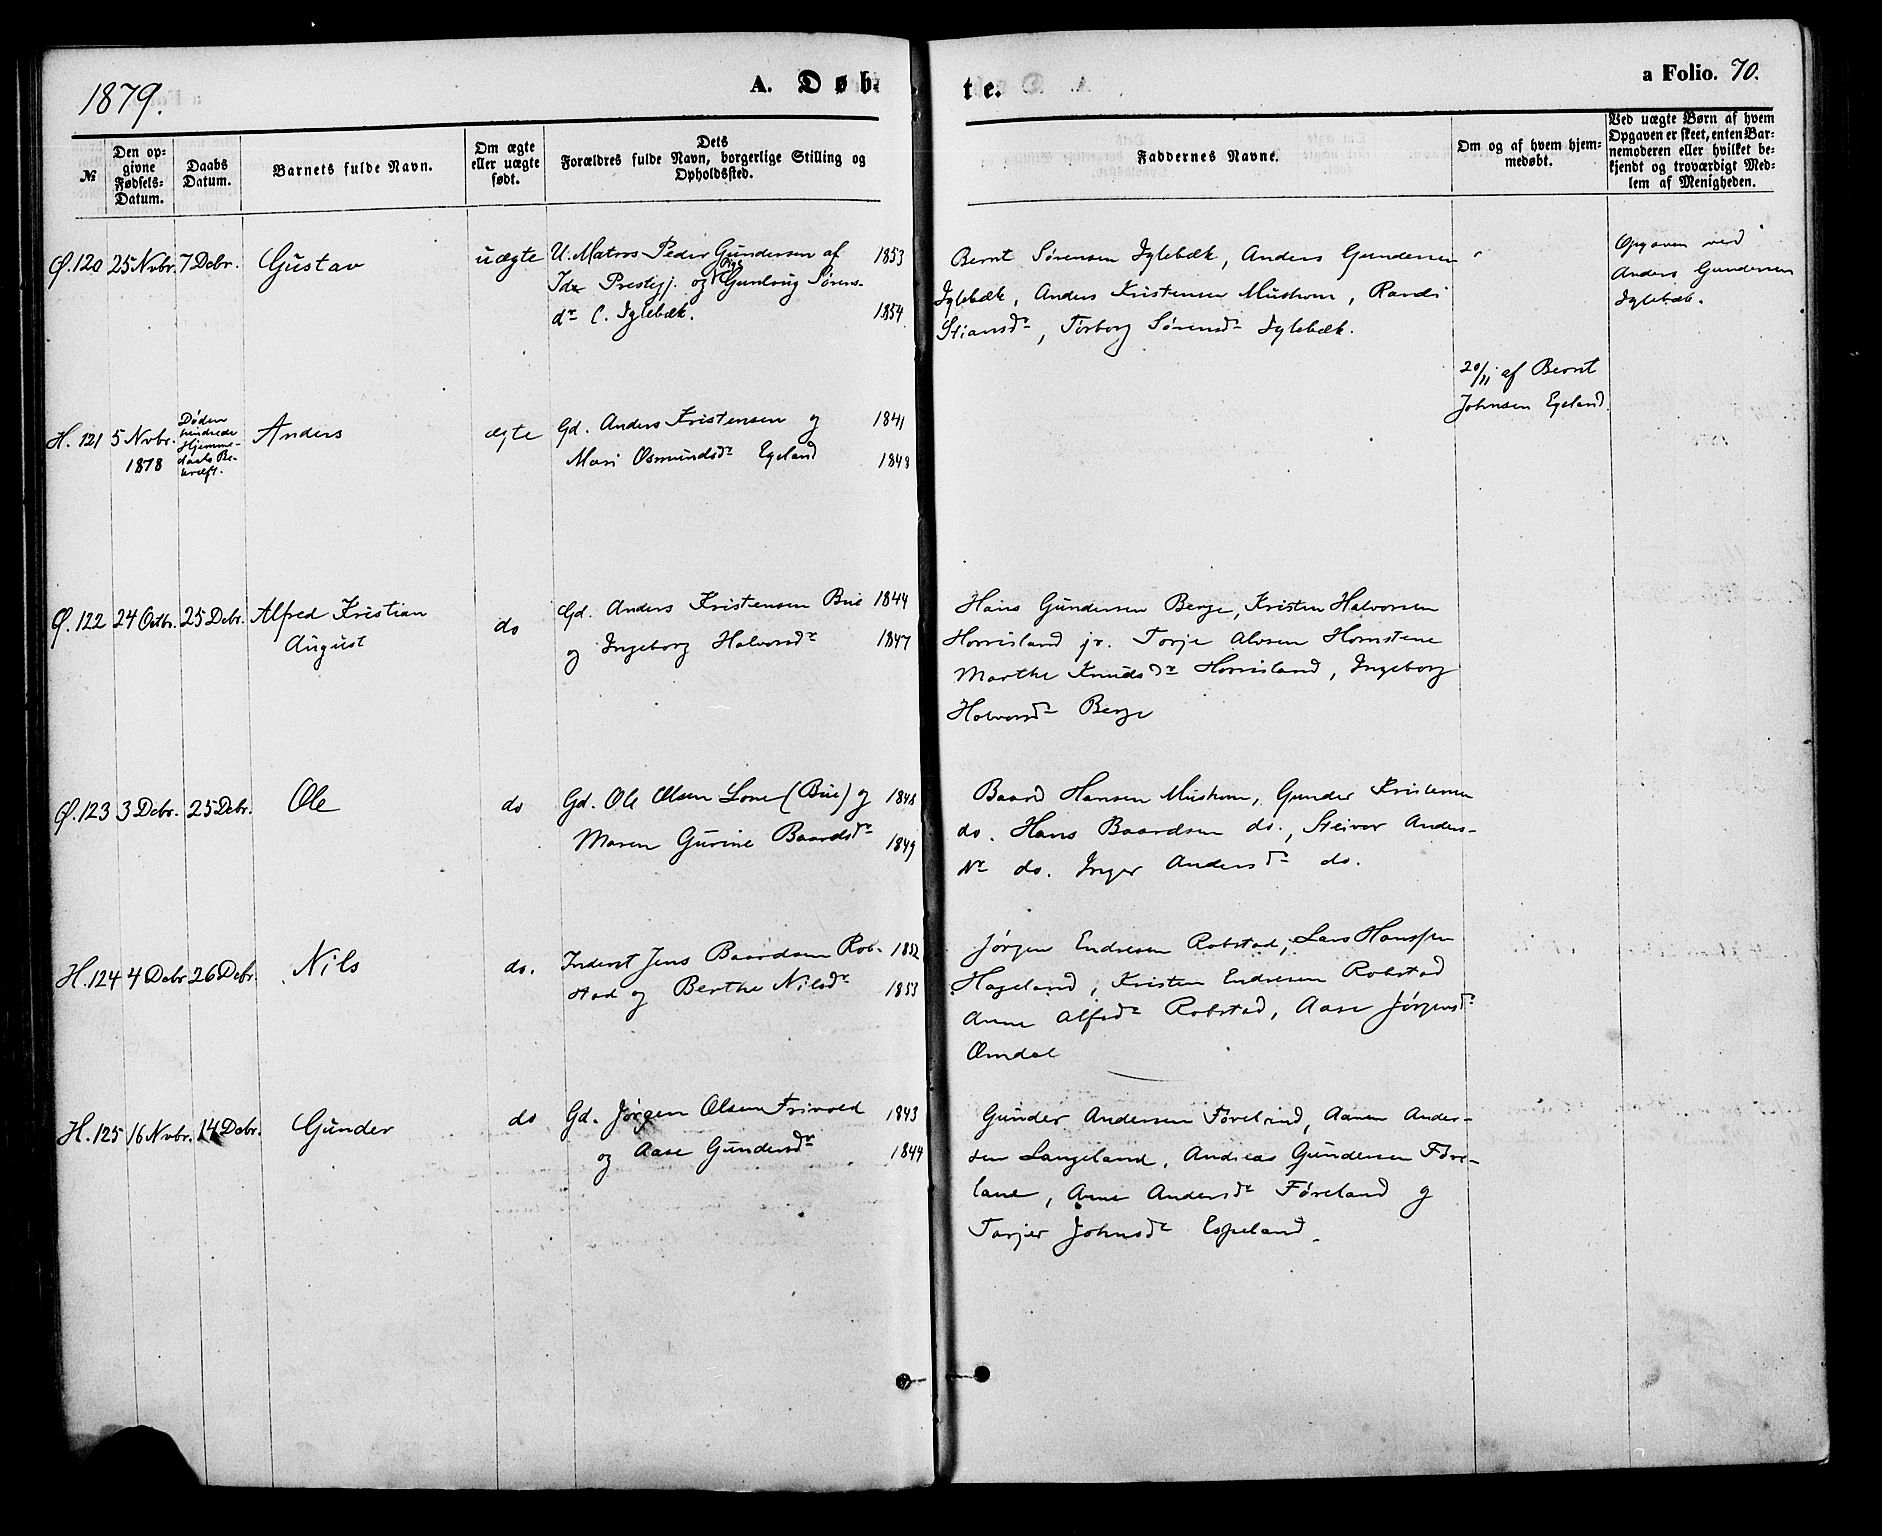 1879.
A. Døb-
te.
a Folio. 70.
№
Den op-
givne
Fødsels-
Datum.
Daabs
Datum.
Barnets fulde Navn.
Om ægte
eller uægte
født.
Dets
Forældres fulde Navn, borgerlige Stilling og
Opholdssted.
Faddernes Navne.
Om og af hvem hjem-
medøbt.
Ved uægte Børn af hvem
Opgaven er skeet, enten Bar-
nemoderen eller hvilket be-
kjendt og troværdigt Med-
lem af Menigheden.
Ø. 120 25 Nvbr. 7 Debr. Gustav uægte U. Matros Peder Gundersen af 1853
Prestgj. og Pige Gunlaug Sørens-
dr C. Iglebæk. 1854.
Bernt Sørensen Iglebæk, Anders Gundersen
Iglebæk, Anders Kristensen Mushom, Randi
Stiansdr, Torborg Sørensdr Iglebæk.
Opgaven ved
Anders Gundersen
Iglebæk.
H. 121 5 Nvbr. 1878
Døden
hindrede
Hjemme-
daabs Be-
kræft.
Anders ægte Gd. Anders Kristensen og 1841
Mari Osmundsdr Egeland 1848
20/11 af Bernt
Johnsen Egeland.
Ø. 122 24 Octbr. 25 Debr. Alfred Kristian
August
do Gd. Anders Kristensen Bue 1844
og Ingeborg Halvorsdr 1847
Hans Gundersen Berge, Kristen Halvorsen
Horrisland jr. Torje Alvsen Homstene
Marthe Knudsdr Horrisland, Ingeborg
Halvorsdr Berge
Ø. 123 3 Debr. 25 Debr. Ole do Gd. Ole Olsen Lone (Bue) og 1848
Maren Gurine Baardsdr 1849
Baard Hansen Mushom, Gunder Kristensen
do. Hans Baardsen do., Steivor Anders-
dr do. Inger Andersdr do.
H. 124 4 Debr 26 Debr. Nils do. Inderst Jens Baardsen Rob- 1852
stad og Berthe Nilsdr 1853
Jørgen Endresen Robstad, Lars Hanssen
Hageland, Kristen Endresen Robstad
Anne Alfsdr Robstad, Aase Jørgensdr
Omdal
H. 125 16 Nvbr. 14 Debr. Gunder do Gd. Jørgen Olsen Frivold 1843
og Aase Gundersdr 1844
Gunder Andersen Føreland, Aanen Ander-
sen Langeland, Andreas Gundersen Føre-
land, Anne Andersdr Føreland og
Torjer Johnsdr Espeland.